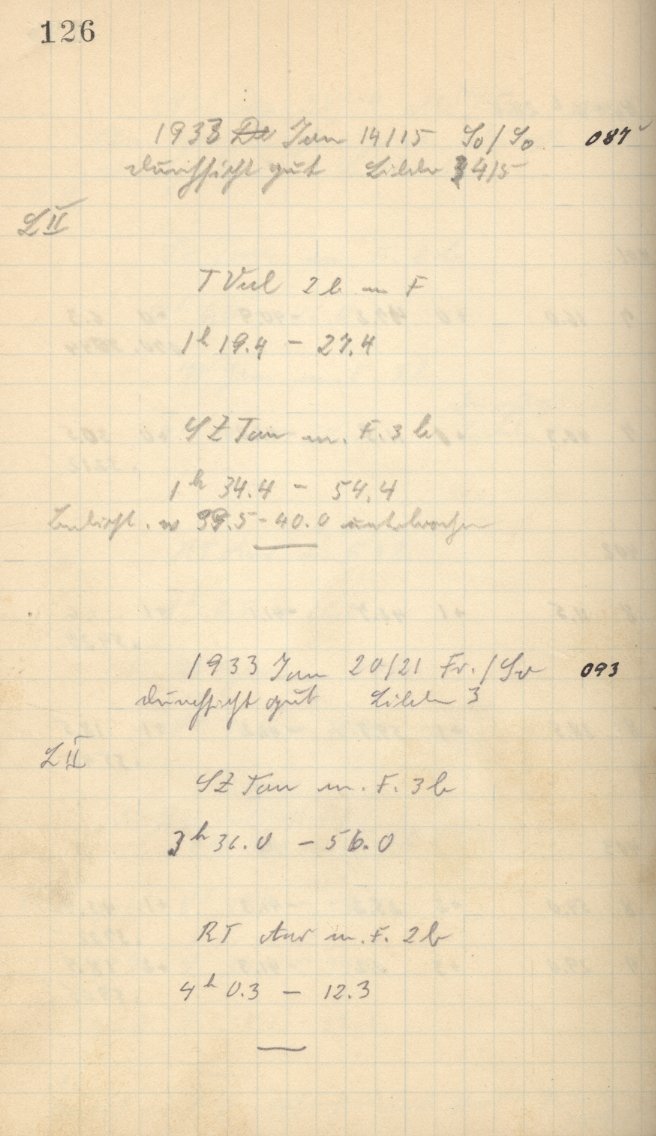 126
1933 Jan 14/15 So/So 087
Durchsicht gut Bilder 4/5
L II
T Vul 2b m F
1h 19.4 - 27.4
SZ Tau m. F. 3b
1h 34.4 - 54.4
Belicht. 39.5-40.0 unterbrochen
1933 Jan 20/21 Fr./So 093
Durchsicht gut Bilder 3
L II
SZ Tau m. F. 3b
3h 36.0 - 56.0
RT Aur m. F. 2b
4h 0.3 - 12.3